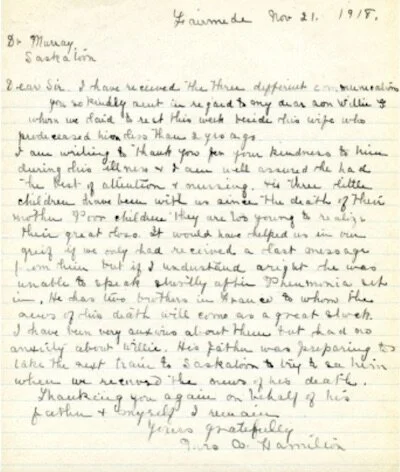 Fairmede Nov 21. 1918.
Dr Murray
Saskatoon
Dear Sir. I have received the three different communications
you so kindly sent in regard to my dear son Willie
whom we laid to rest this week beside his wife who
predeceased him less than 2 yrs ago.
I am wishing to thank you for your kindness to him
during his illness & I am well assured he had
the best of attention & nursing. His three little
children have been with us since the death of their
mother Poor children they are too young to realize
their great loss. It would have helped us in our
grief if we only had received a last message
from him but if I understand aright he was
unable to speak shortly after Pneumonia set
in. He has two brothers in France to whom the
news of his death will come as a great shock.
I have been very anxious about them but had no
anxiety about Willie. His father was preparing to
take the next train to Saskatoon to try to see him
when we received the news of his death.
Thanking you again on behalf of his
father & myself I remain
Yours gratefully
Mrs Hamilton